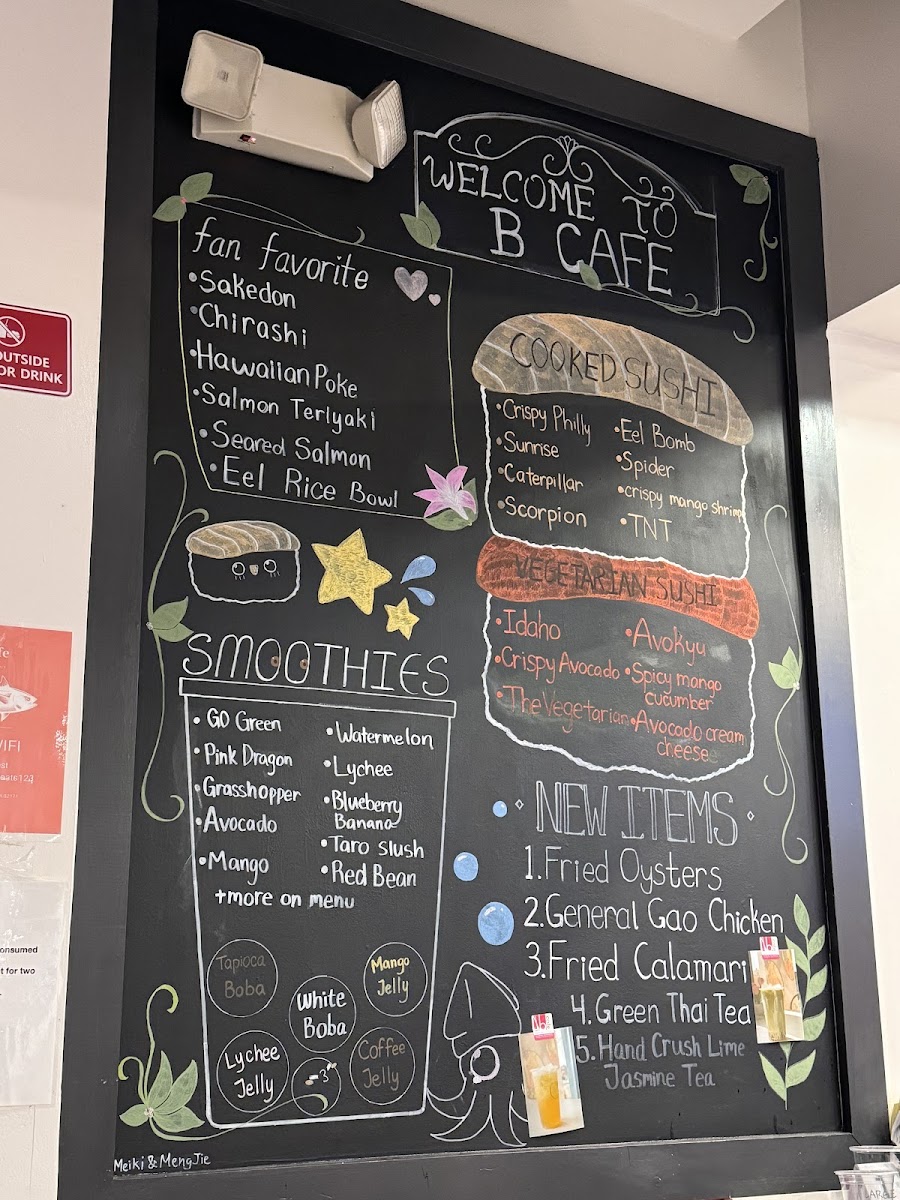 WELCOME TO
B CAFE
fan favorite
•Sakedon
•Chirashi
•Hawaiian Poke
•Salmon Teriyaki
•Seared Salmon
•Eel Rice Bowl
COOKED SUSHI
•Crispy Philly
•Sunrise
•Caterpillar
•Scorpion
•Eel Bomb
•Spider
•crispy mango shrimp
•TNT
VEGETARIAN SUSHI
•Idaho
•Crispy Avocado
•The Vegetarian
•Avokyu
•Spicy mango
cucumber
•Avocado cream
cheese
SMOOTHIES
•GO Green
•Pink Dragon
•Grasshopper
•Avocado
•Mango
•Watermelon
•Lychee
•Blueberry
Banana
•Taro slush
•Red Bean
+more on menu
Tapioca
Boba
White
Boba
Mango
Jelly
Lychee
Jelly
Coffee
Jelly
NEW ITEMS
1.Fried Oysters
2.General Gao Chicken
3.Fried Calamari
4.Green Thai Tea
5.Hand Crush Lime
Jasmine Tea
Meiki & MengJie
OUTSIDE
OR DRINK
fe
WIFI
onsumed
t for two